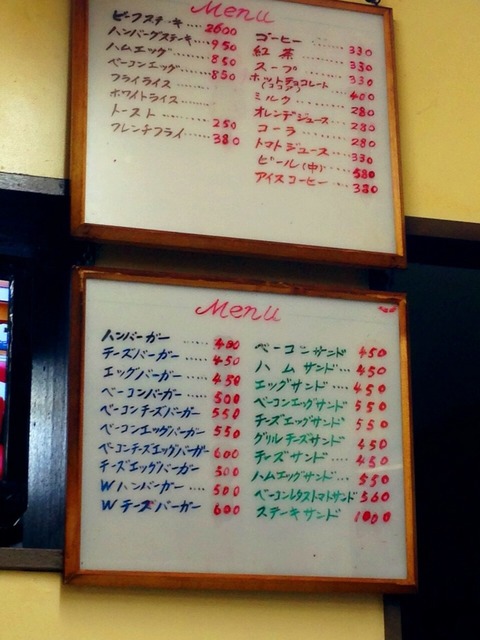 Menu
ビーフステーキ.... 2600
ハンバーグステーキ... 950
ハムエッグ........ 850
ベーコンエッグ..... 850
フライライス......
ホワイトライス......
トースト........ 250
フレンチフライ.... 380
コーヒー........ 330
紅茶........ 330
スープ........ 330
ホットチョコレート
(ココア) ..... 400
ミルク........ 280
オレンヂジュース.... 280
コーラ........ 280
トマトジュース.... 330
ビール(中)..... 580
アイスコーヒー.... 330
Menu
ハンバーガー ...... 400
チーズバーガー .... 450
エッグバーガー .... 450
ベーコンバーガー 500
ベーコンチーズバーガー 550
ベーコンエッグバーガー 550
ベーコンチーズエッグバーガー 600
チーズエッグバーガー 500
Wハンバーガー .... 500
Wチーズバーガー 600
ベーコンサンド 450
ハムサンド.... 450
エッグサンド.... 450
ベーコンエッグサンド 550
チーズエッグサンド 550
グリルチーズサンド 450
チーズサンド.... 450
ハムエッグサンド.... 550
ベーコンレタストマトサンド 560
ステーキサンド 1000